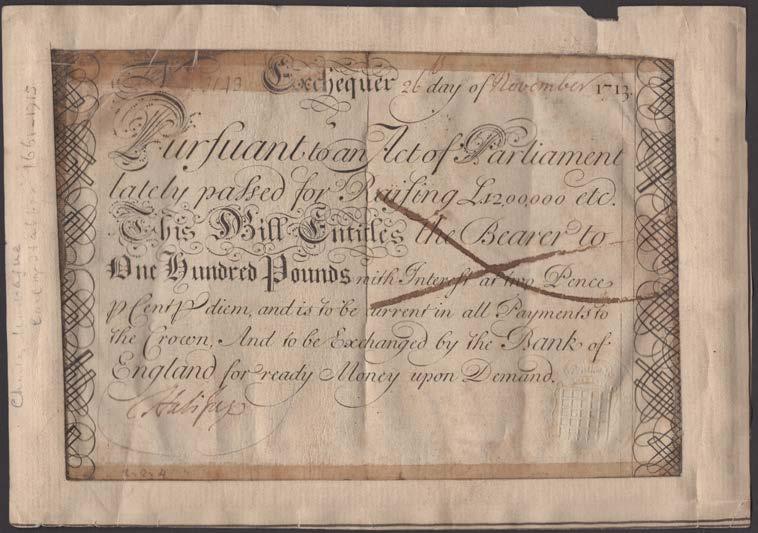 Exchequer 26 day of November 1713.
Pursuant to an Act of Parliament
lately passed for Raising £1200,000 etc.
This Bill Entitles the Bearer to
One Hundred Pounds with Interest at two Pence
p Cent p diem, and is to be current in all Payments to
the Crown, And to be Exchanged by the Bank of
England for ready Money upon Demand.
Halifax
1661-1715